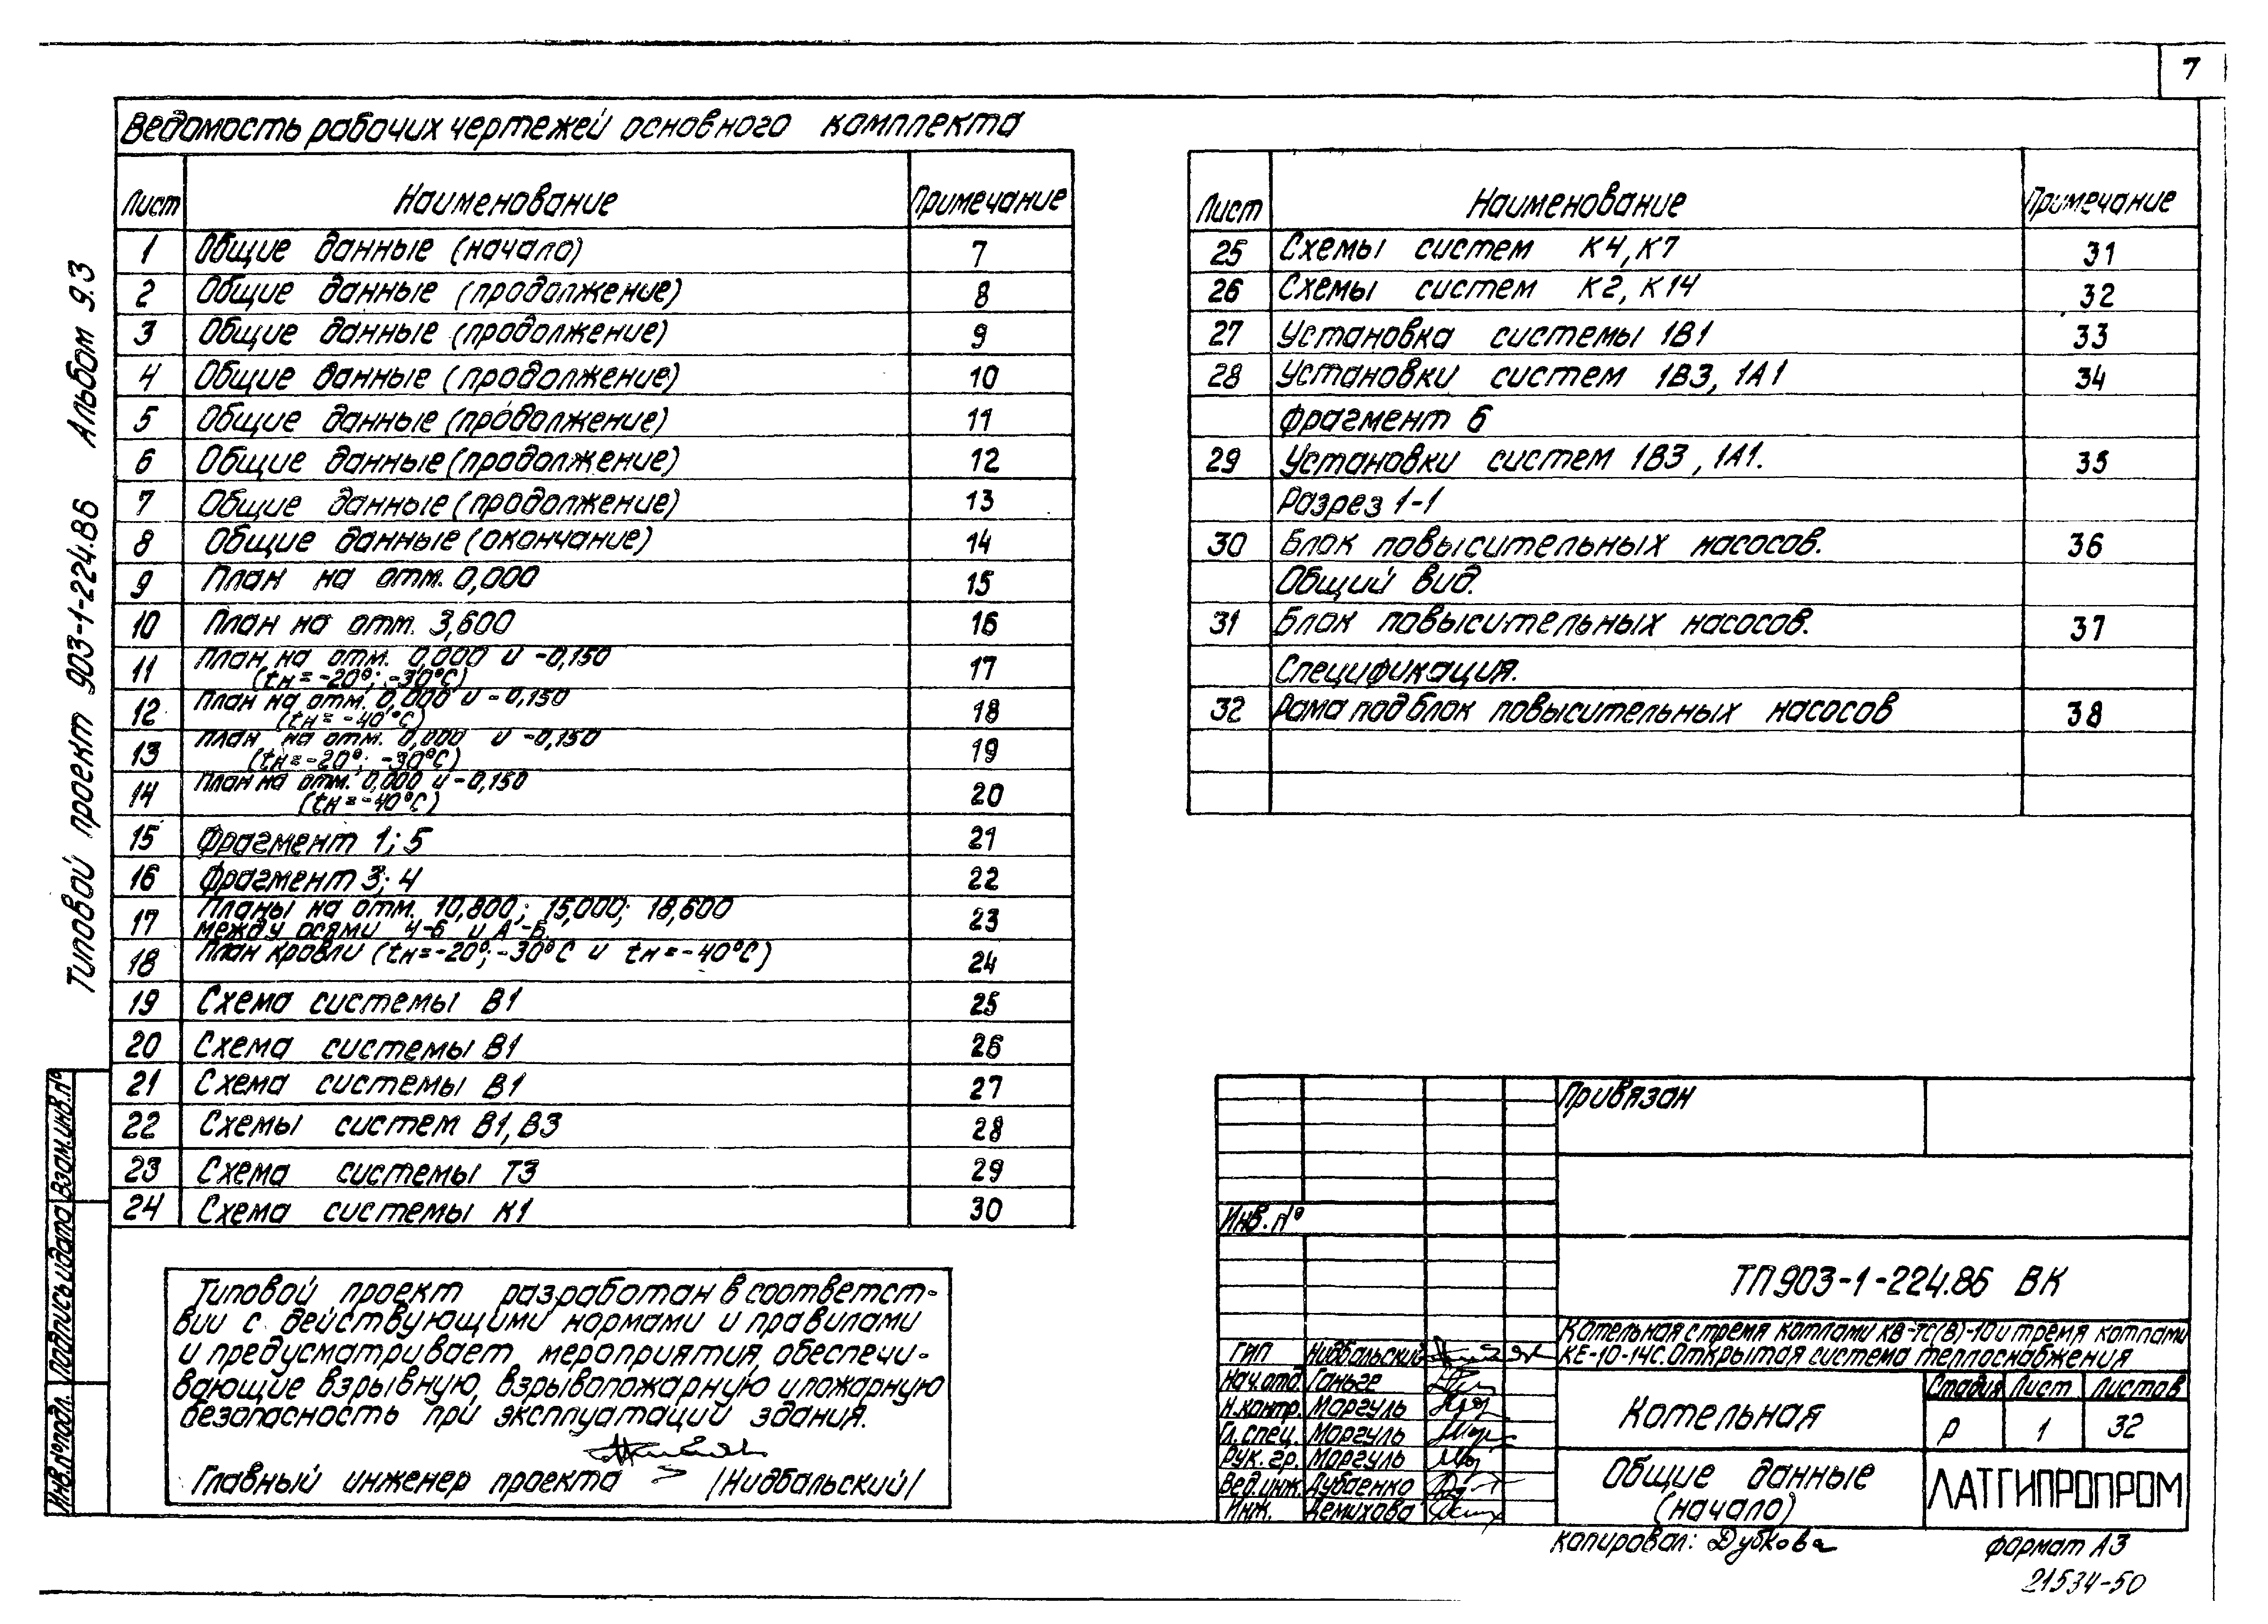 7
Ведомость рабочих чертежей основного комплекта
Лист Наименование Примечание
1 Общие данные (начало) 7
2 Общие данные (продолжение) 8
3 Общие данные (продолжение) 9
4 Общие данные (продолжение) 10
5 Общие данные (продолжение) 11
6 Общие данные (продолжение) 12
7 Общие данные (продолжение) 13
8 Общие данные (окончание) 14
9 План на отм. 0,000 15
10 План на отм. 3,600 16
11 План на отм. 0,000 и -0,150 17
(tн=-20°; -30°С)
12 План на отм. 0,000 и -0,150 18
(tн=-40°С)
13 План на отм. 0,000 и -0,150 19
(tн=-20°; -30°С)
14 План на отм. 0,000 и -0,150 20
(tн=-40°С)
15 Фрагмент 1; 5 21
16 Фрагмент 3; 4 22
17 Планы на отм. 10,800; 15,000; 18,600 23
между осями 4-6 и А-Б
18 План кровли (tн=-20°;-30°С и tн=-40°С) 24
19 Схема системы В1 25
20 Схема системы В1 26
21 Схема системы В1 27
22 Схемы систем В1, В3 28
23 Схема системы Т3 29
24 Схема системы К1 30
Лист Наименование Примечание
25 Схемы систем К4, К7 31
26 Схемы систем К2, К14 32
27 Установка системы 1В1 33
28 Установки систем 1В3, 1А1 34
Фрагмент 6
29 Установки систем 1В3, 1А1. 35
Разрез 1-1
30 Блок повысительных насосов. 36
Общий вид.
31 Блок повысительных насосов. 37
Спецификация.
32 Рама под блок повысительных насосов 38
Типовой проект 903-1-224.86 Альбом 9.3
Инв.№подл. Подпись и дата Взам.инв.№
Типовой проект разработан в соответст-
вии с действующими нормами и правилами
и предусматривает мероприятия, обеспечи-
вающие взрывную, взрывопожарную и пожарную
безопасность при эксплуатации здания.
Главный инженер проекта /Нидбальский/
Привязан
Инв.№
ТП 903-1-224.86 ВК
Котельная с тремя котлами КВ-ТС(В)-10 и тремя котлами
КЕ-10-14С. Открытая система теплоснабжения
ГИП Нидбальский
Нач.отд. Ганьге
Н.контр. Маргуль
Гл.спец. Маргуль
Рук.гр. Маргуль
Вед.инж. Дубаенко
Инж. Демихова
Котельная
Стадия Лист Листов
Р 1 32
Общие данные
(начало)
ЛАТГИПРОПРОМ
Копировал: Дубкова
Формат А3
21534-50